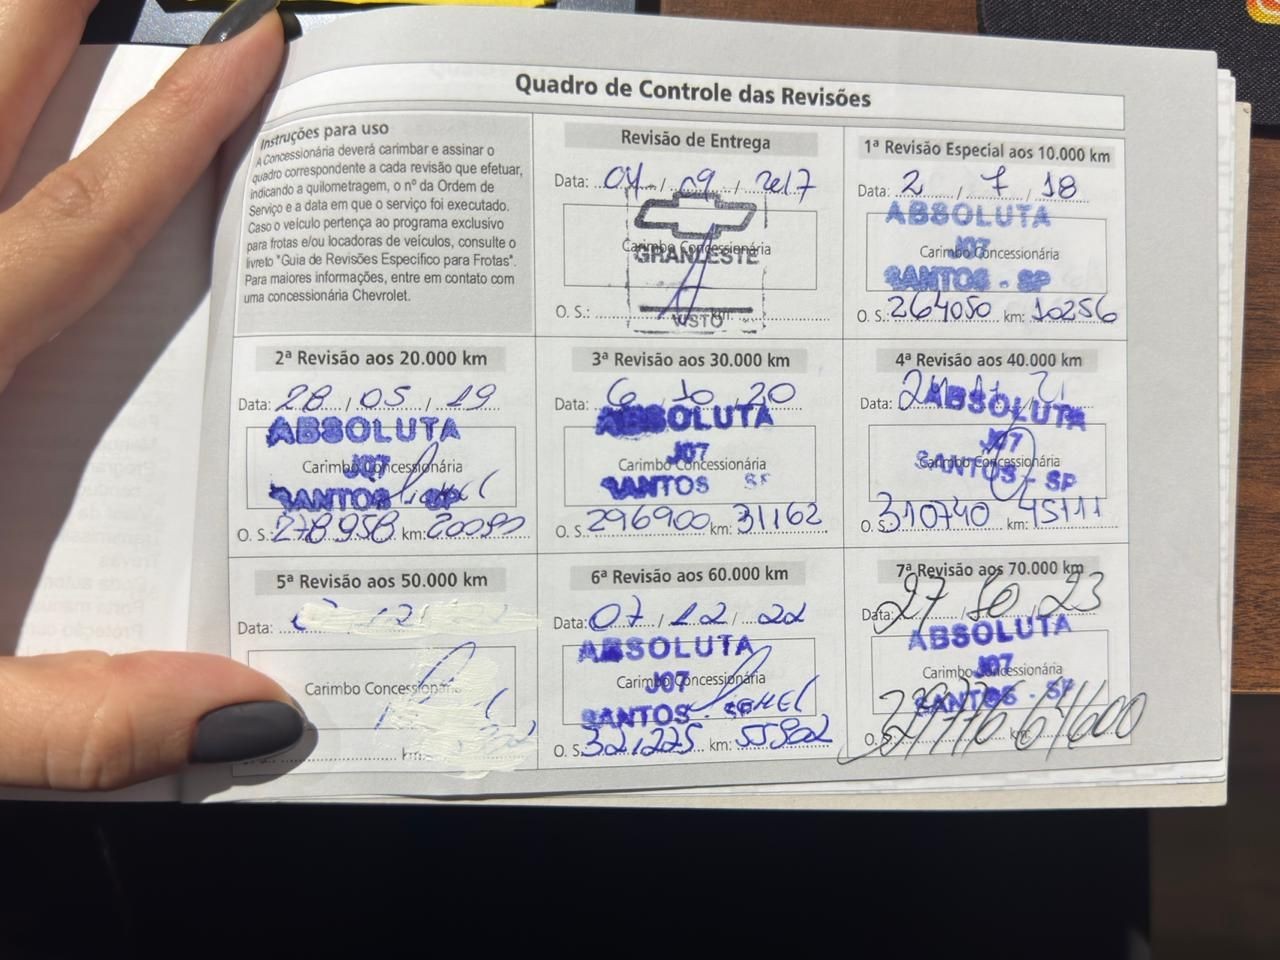 Quadro de Controle das Revisões
Instruções para uso
A Concessionária deverá carimbar e assinar o
quadro correspondente a cada revisão que efetuar,
indicando a quilometragem, o nº da Ordem de
Serviço e a data em que o serviço foi executado.
Caso o veículo pertença ao programa exclusivo
para frotas e/ou locadoras de veículos, consulte o
livreto "Guia de Revisões Específico para Frotas".
Para maiores informações, entre em contato com
uma concessionária Chevrolet.
Revisão de Entrega
Data: 04 / 09 / 2017
Carimbo Concessionária
GRANLESTE
O. S.: km:
VISTO
1ª Revisão Especial aos 10.000 km
Data: 2 / 7 / 18
ABSOLUTA
Carimbo Concessionária
J07
SANTOS - SP
O. S.: 264050 km: 10256
2ª Revisão aos 20.000 km
Data: 28 / 05 / 19
ABSOLUTA
Carimbo Concessionária
J07
SANTOS - SP
O. S.: 278958 km: 20090
3ª Revisão aos 30.000 km
Data: 6 / 10 / 20
ABSOLUTA
J07
Carimbo Concessionária
SANTOS SP
O. S.: 296900 km: 31162
4ª Revisão aos 40.000 km
Data: / 21
ABSOLUTA
J07
Carimbo Concessionária
SANTOS - SP
O. S.: 310740 km: 45111
5ª Revisão aos 50.000 km
Data:
Carimbo Concessionária
km:
6ª Revisão aos 60.000 km
Data: 07 / 12 / 22
ABSOLUTA
Carimbo Concessionária
J07
SANTOS -
O. S.: 321225 km: 55802
7ª Revisão aos 70.000 km
Data: 27 / 10 / 23
ABSOLUTA
J07
Carimbo Concessionária
SANTOS - SP
O. S.: km: 64600